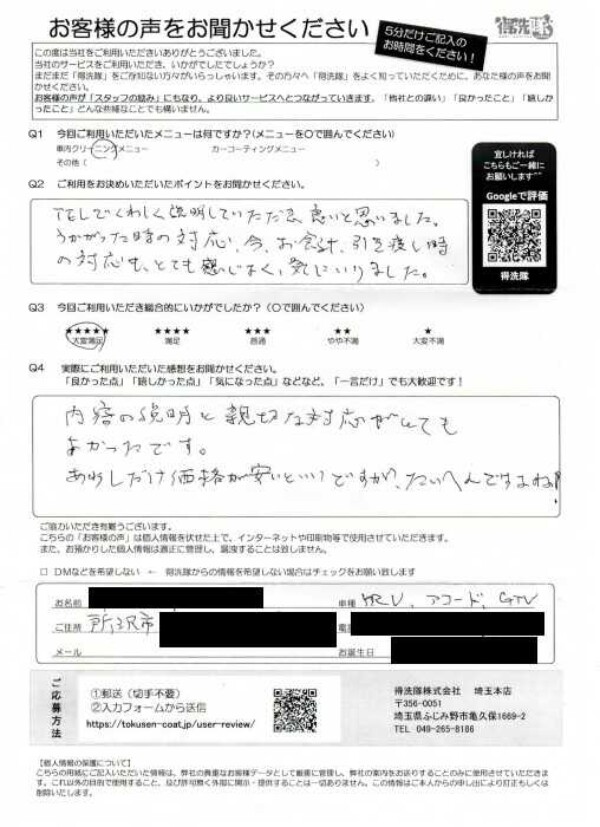 お客様の声をお聞かせください
5分だけご記入の
お時間をください！
得洗隊
この度は当社をご利用いただきありがとうございました。
当社のサービスをご利用いただき、いかがでしたでしょうか？
まだまだ「得洗隊」をご存知ない方々がいらっしゃいます。その方々へ「得洗隊」をよく知っていただくために、あなた様の声をお聞
かせください。
お客様の声が「スタッフの励み」にもなり、より良いサービスへとつながっていきます。「他社との違い」「良かったこと」「嬉しか
ったこと」どんな些細なことでも構いません。
Q1 今回ご利用いただいたメニューは何ですか？(メニューを〇で囲んでください)
車内クリーニングメニュー カーコーティングメニュー
その他（ ）
宜しければ
こちらもご一緒に
お願いします^^
Googleで評価
得洗隊
Q2 ご利用をお決めいただいたポイントをお聞かせください。
TELでくわしく説明していただき、良いと思いました。
うかがった時の対応、今、お会計、引き渡し時
の対応も、とても感じよく、気にいりました。
Q3 今回ご利用いただき総合的にいかがでしたか？（〇で囲んでください）
★★★★★ ★★★★ ★★★ ★★ ★
大変満足 満足 普通 やや不満 大変不満
Q4 実際にご利用いただいた感想をお聞かせください。
「良かった点」「嬉しかった点」「気になった点」などなど、「一言だけ」でも大歓迎です！
内容の説明と親切な対応がとても
よかったです。
あと少しだけ価格が安いといいですが、たいへんですよね！
ご協力いただき有難うございます。
こちらの「お客様の声」は個人情報を伏せた上で、インターネットや印刷物等で使用させていただきます。
また、お預かりした個人情報は適正に管理し、漏洩することは致しません。
□ DMなどを希望しない ← 得洗隊からの情報を希望しない場合はチェックをお願い致します
お名前 車種 アコード、GTV
ご住所 所沢市 電
メール お誕生日
ご応募方法
①郵送（切手不要）
②入力フォームから送信
https://tokusen-coat.jp/user-review/
得洗隊株式会社 埼玉本店
〒356-0051
埼玉県ふじみ野市亀久保1669-2
TEL 049-265-8186
【個人情報の保護について】
こちらの用紙にご記入いただいた情報は、弊社の貴重なお客様データとして厳重に管理し、弊社の案内をお送りすることのみに使用させていただきま
す。これ以外の目的で使用すること、及び許可無く外部に開示・提供することは一切ありません。この情報はご本人からの申し出により訂正もしくは
削除いたします。